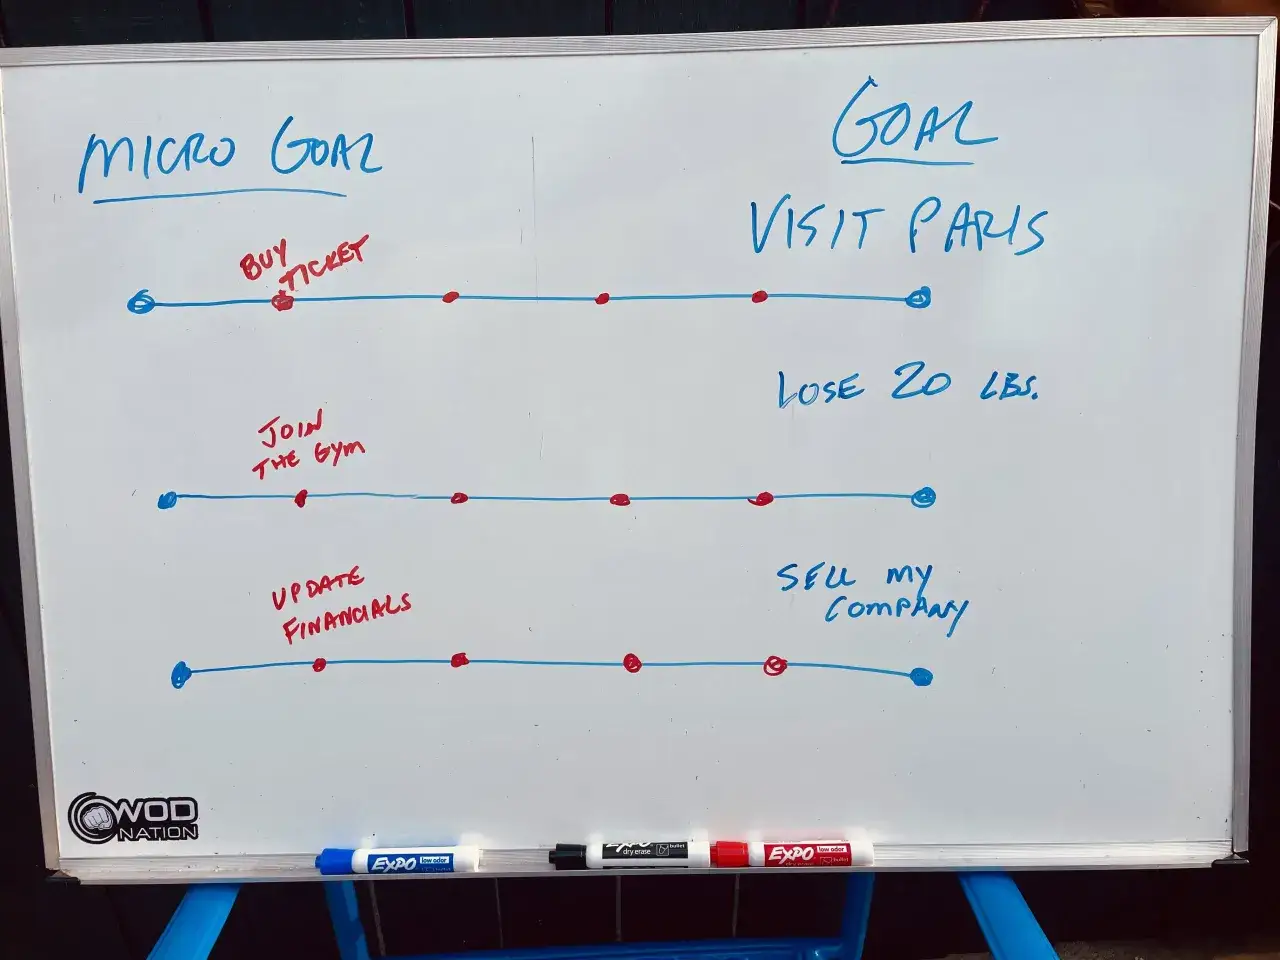 MICRO GOAL
GOAL
VISIT PARIS
BUY
TICKET
LOSE 20 LBS.
JOIN
THE GYM
SELL MY
COMPANY
UPDATE
FINANCIALS
WOD
NATION
EXPO low odor
bullet
EXPO
dry erase bullet
EXPO low odor
dry erase bullet